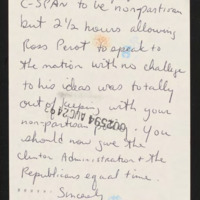 C-SPAN to be non-partisan
but 2 1/2 hours allowing
Ross Perot to speak to
the nation with no challege
to his ideas was totally
out of keeping with your
non-partisan. You
should now give the
Clinton Administration & the
Republicans equal time.
Sincerely